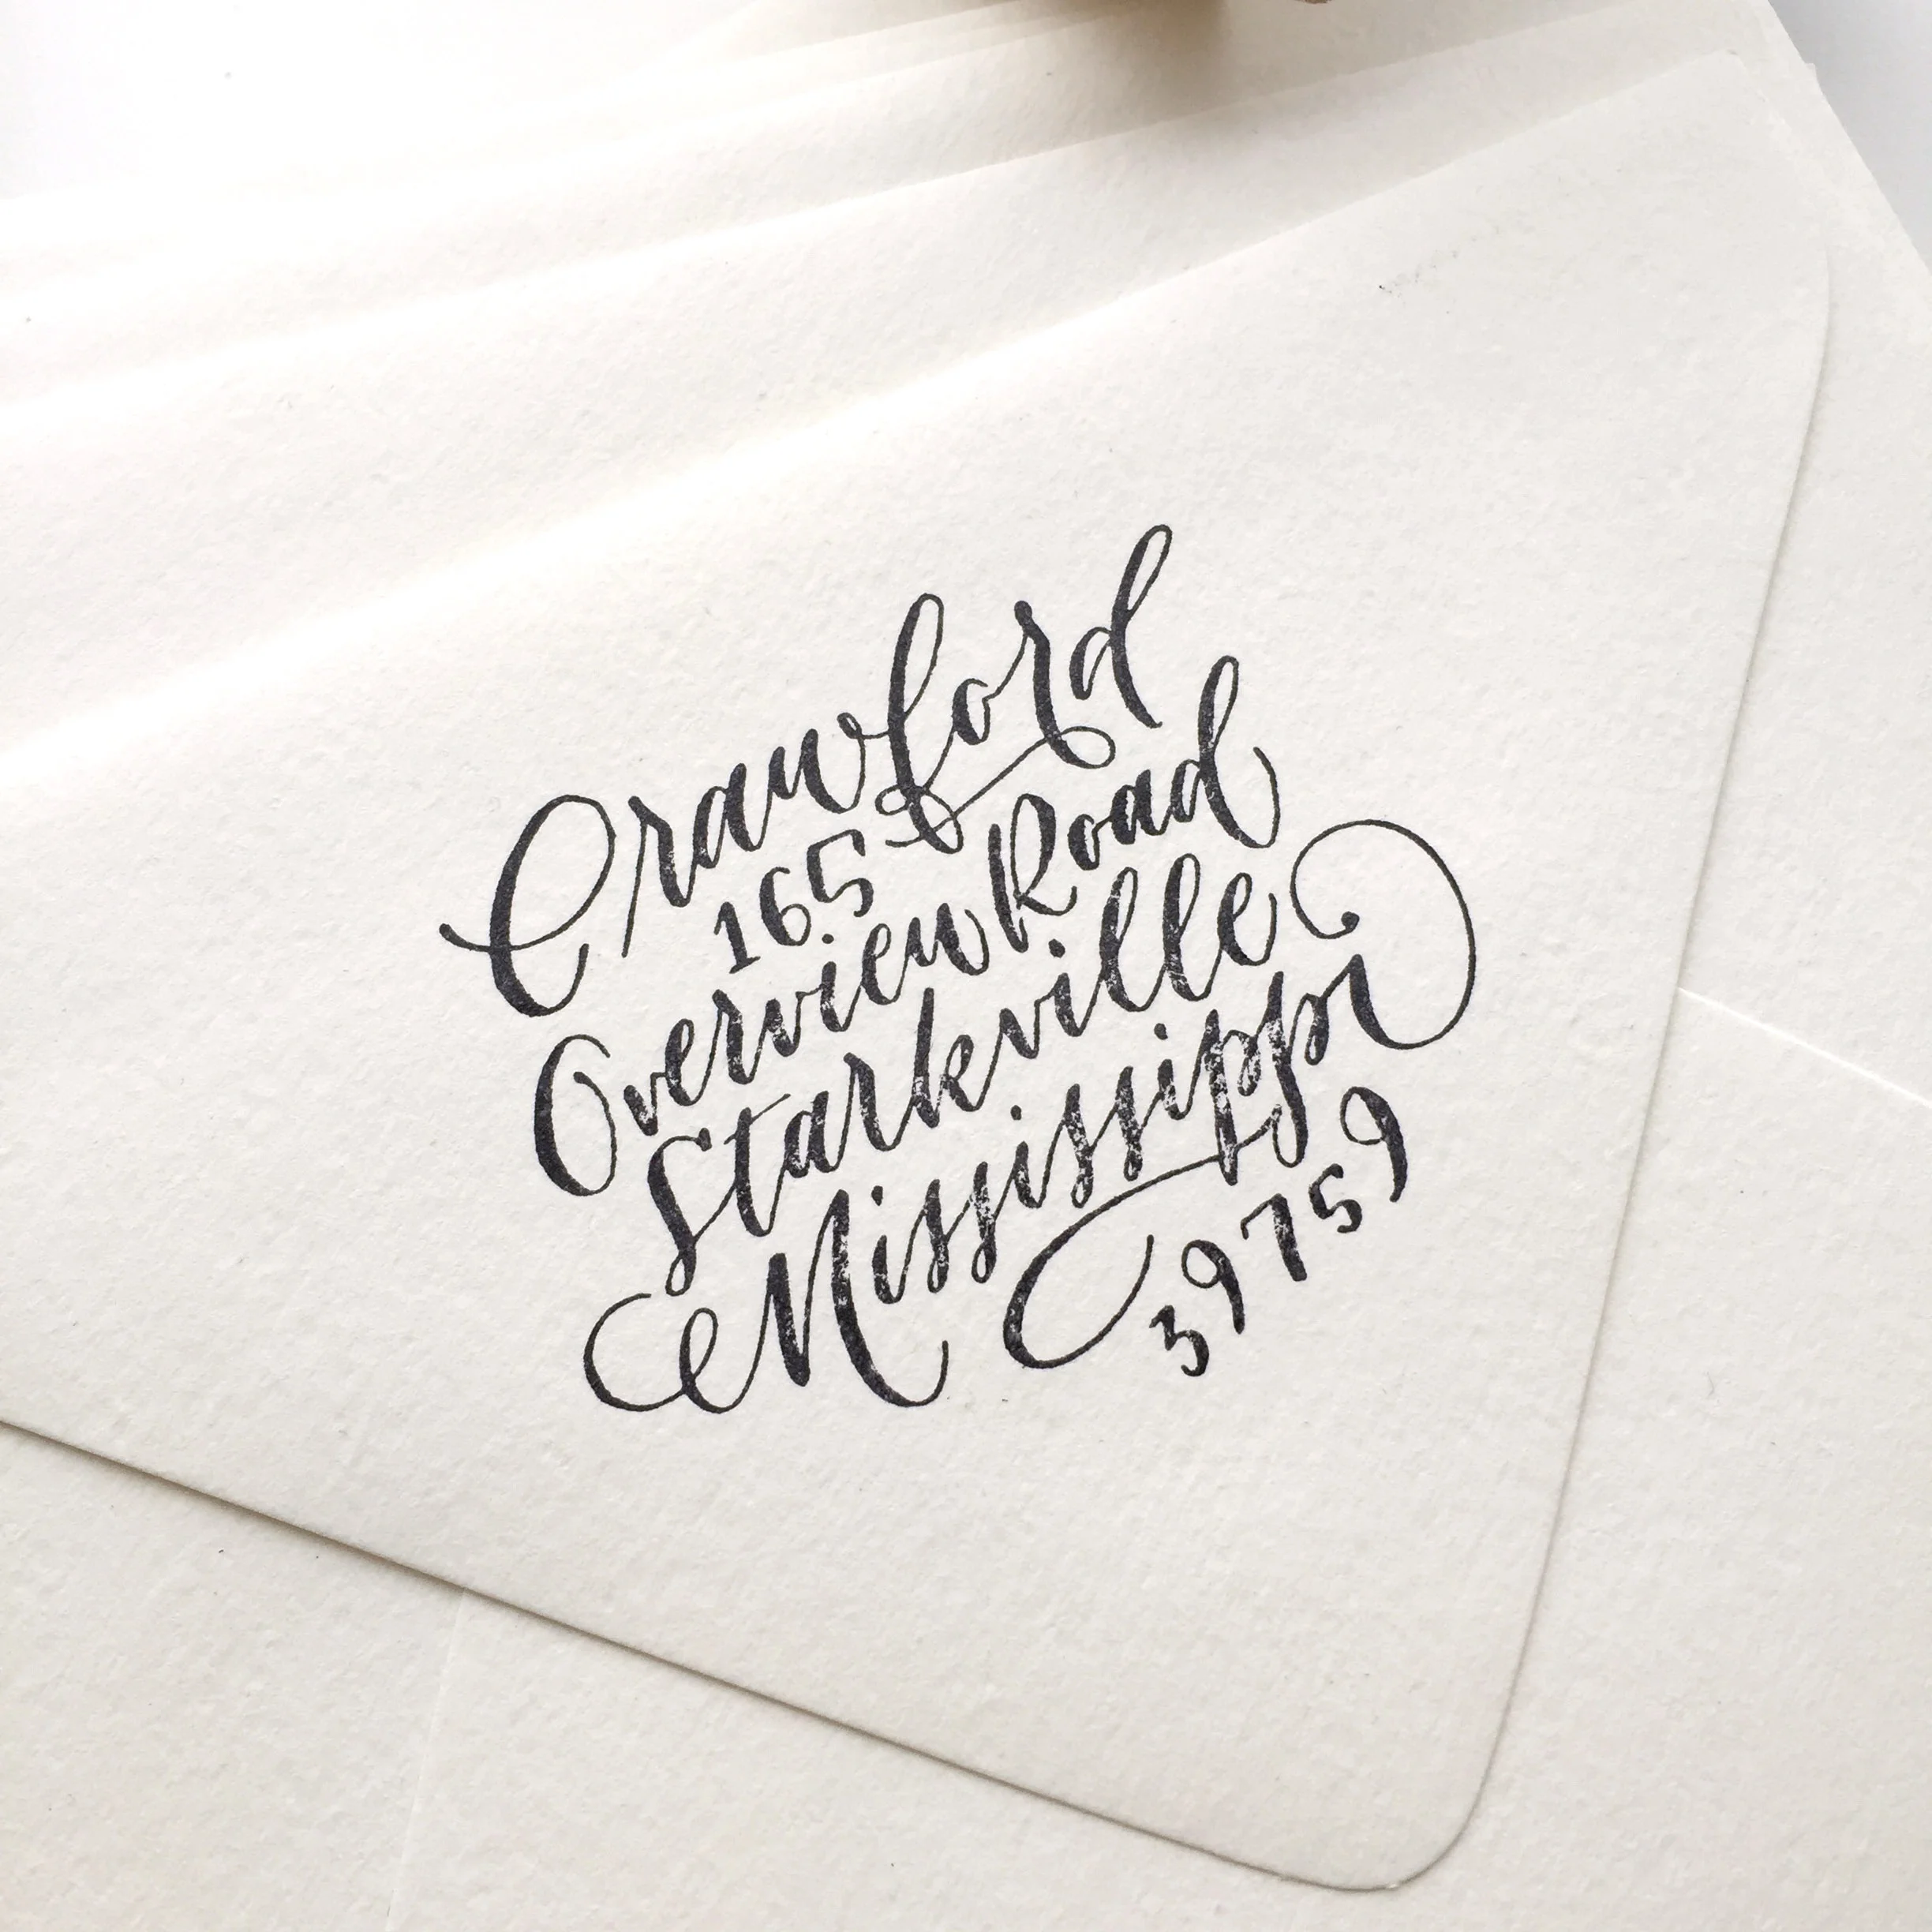 Crawford
165
Overview Road
Starkville
Mississippi
39759